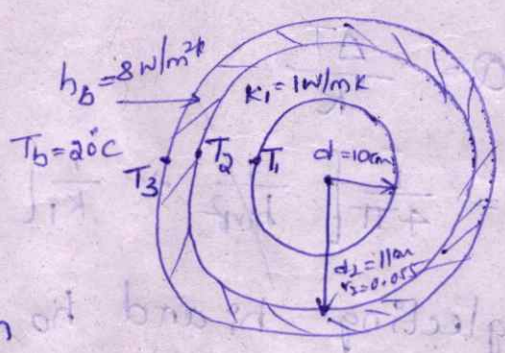 h_b = 8 W/m²k
K₁ = 1W/mK
T_b = 20°C
T₃
T₂
T₁
d = 10cm
d₂ = 11cm
r₂ = 0.055